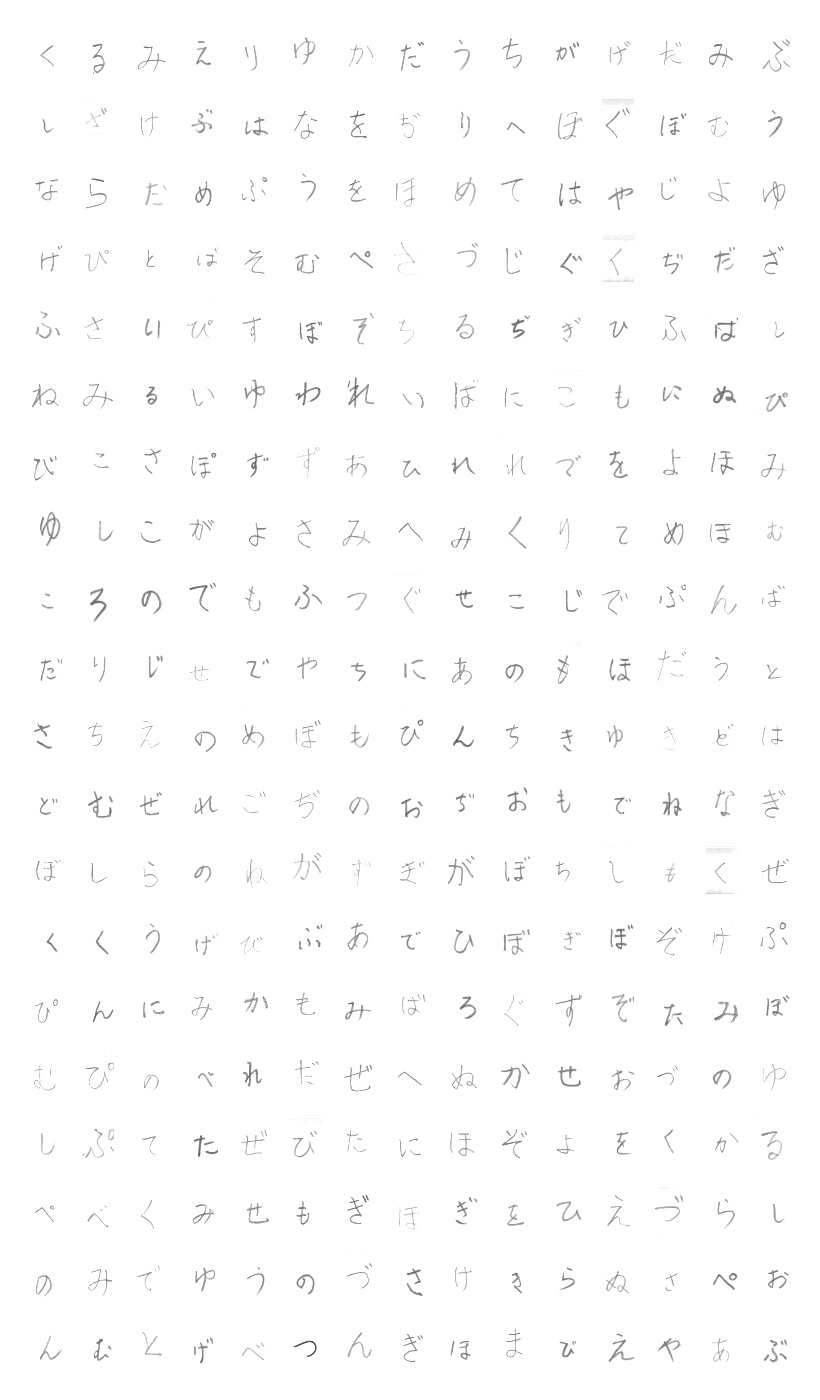 くるみえりゆかだうちがげだみぶ
しざけぶはなをぢりへぼぐぼむう
ならだめぷうをほめてはやじよゆ
げぴとばそむぺさづじぐくぢだざ
ふさいぴすぼぞちるぢぎひふばし
ねみるいゆわれいばにこもにぬぴ
びこさぽずずあひれれでをよほみ
ゆしこがよさみへみくりてめほむ
ころのでもふつぐせこじでぷんば
だりじせでやちにあのもほだうと
さちえのめぼもぴんちきゆきどは
どむぜれごぢのおぢおもでねなぎ
ぼしらのねがずぎがぼちしもくぜ
くくうげびぶあでひぼぎぼぞけぷ
ぴんにみかもみばろぐすぞたみぼ
むぴのべれだぜへぬかせおづのゆ
しぷてたぜびたにほぞよをくかる
ぺべくみせもぎほぎをひえづらし
のみでゆうのづさけきらぬさぺお
んむとげべつんぎほまびえやあぶ